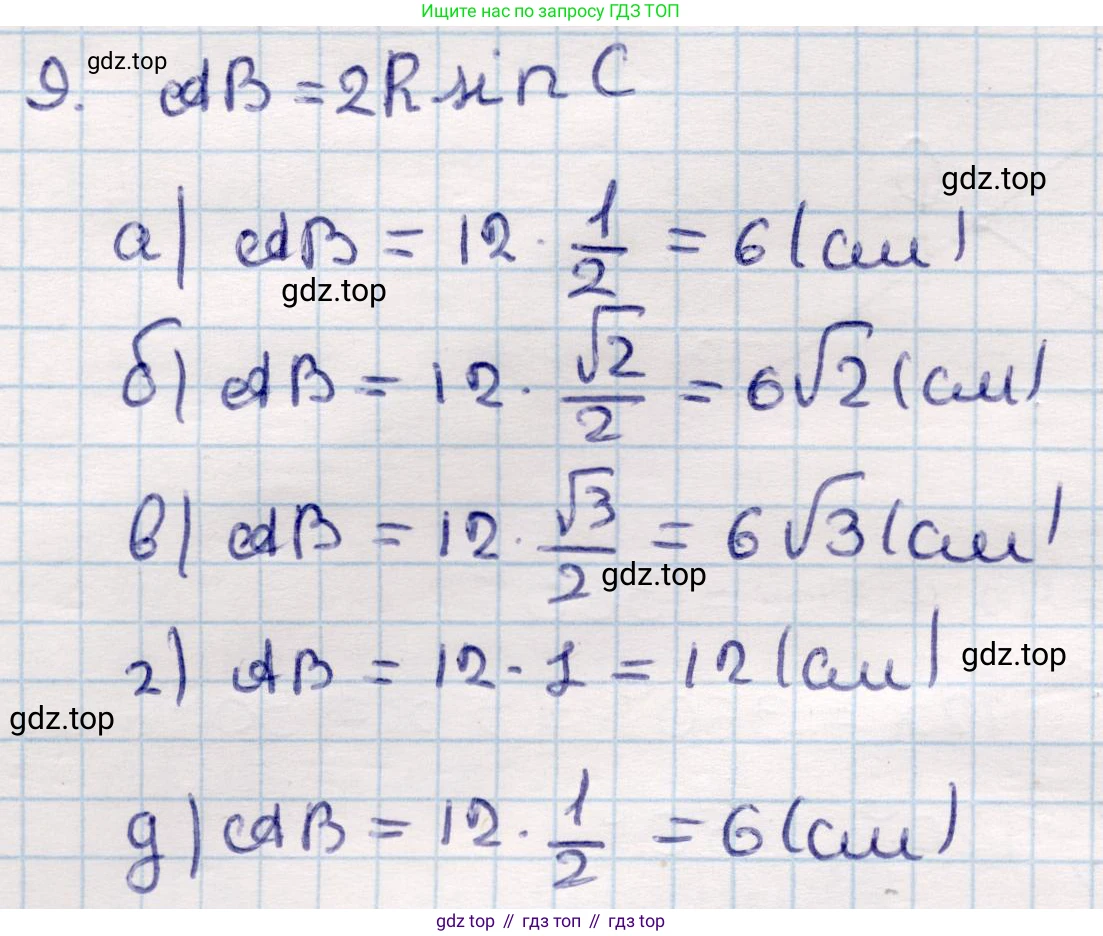 Ищите нас по запросу ГДЗ ТОП
9. gdz.top AB = 2R sin C
gdz.top
а) AB = 12 · 1/2 = 6 (см)
gdz.top
б) AB = 12 · √2/2 = 6√2 (см)
в) AB = 12 · √3/2 = 6√3 (см)
gdz.top
г) AB = 12 · 1 = 12 (см)
gdz.top
gdz.top
д) AB = 12 · 1/2 = 6 (см)
gdz top // гдз топ // gdz top